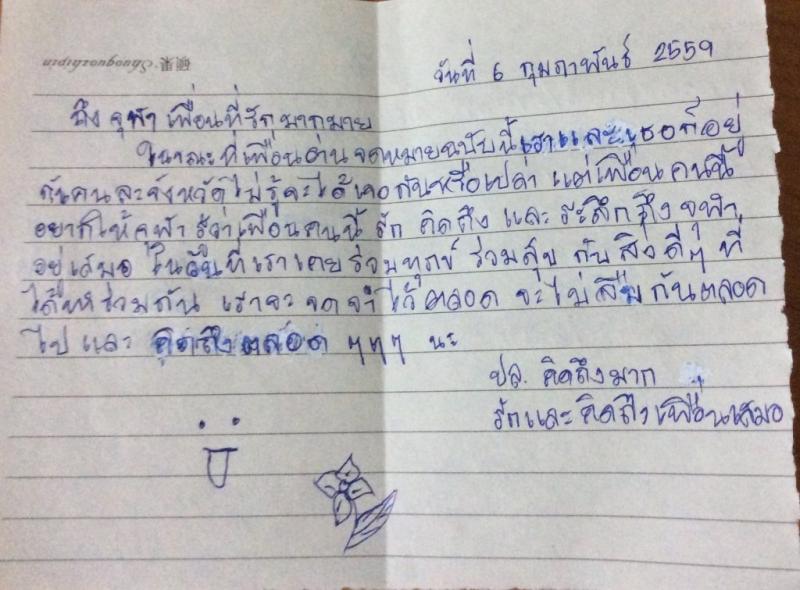 วันที่ 6 กุมภาพันธ์ 2559
ถึง จุฬา เพื่อนที่รักมากมาย
ในขณะที่เพื่อนอ่านจดหมายฉบับนี้เราและเธอก็อยู่
กันคนละจังหวัดไม่รู้จะได้เจอกันหรือเปล่า แต่เพื่อนคนนี้
อยากให้จุฬา รู้ว่าเพื่อนคนนี้ รัก คิดถึง และ ระลึกถึง จุฬา
อยู่เสมอ ในวันที่เราเคยร่วมทุกข์ ร่วมสุข กับสิ่งดีๆ ที่
ได้ทำร่วมกัน เราจะจดจำไว้ตลอด จะไม่ลืมกันตลอด
ไป และ คิดถึงตลอด ๆๆๆ นะ
ปล. คิดถึงมาก
รักและคิดถึงเพื่อนเสมอ